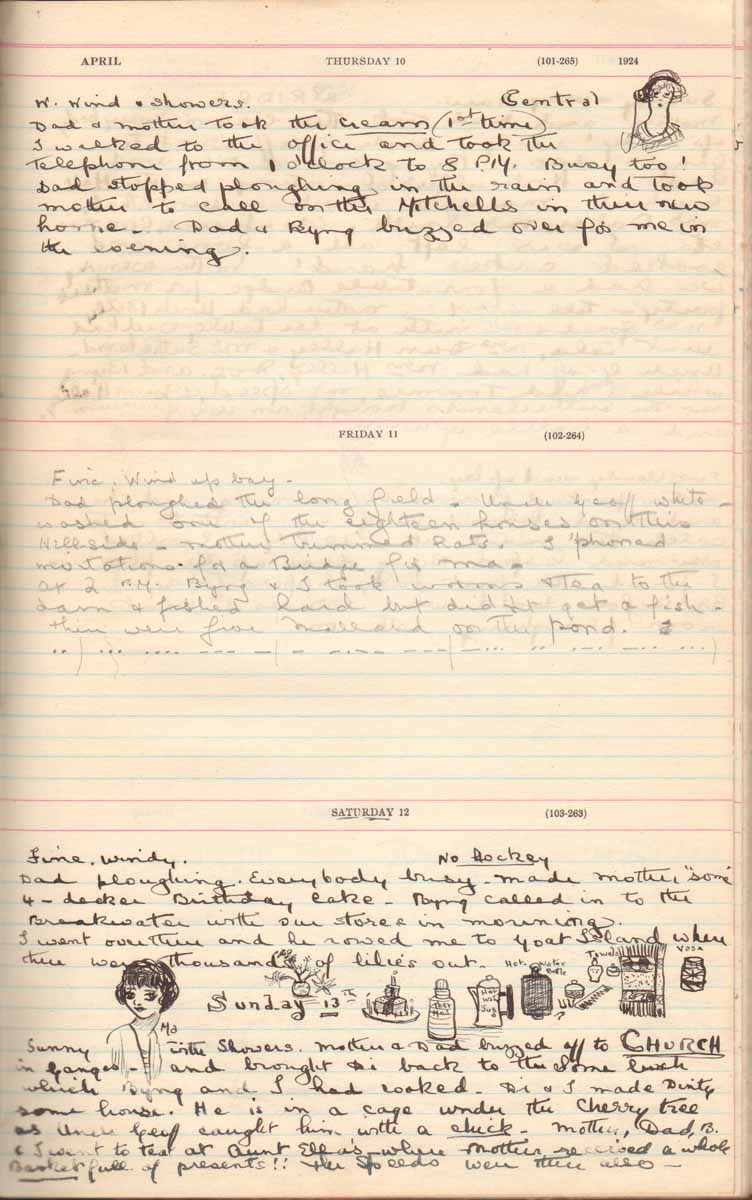 APRIL THURSDAY 10 (101-265) 1924
W. Wind & showers. Central
Dad & mother took the cream (1st time)
I walked to the office and took the
telephone from 1 o'clock to 8 P.M. Busy too!
Dad stopped ploughing in the rain and took
mother to call on the Mitchells in their new
home - Dad & Byng buzzed over for me in
the evening.
FRIDAY 11 (102-264)
Fine. Wind up bay -
Dad ploughed the long field. Uncle Geoff white-
washed one of the eighteen houses on this
Hill-side - mother trimmed hats. I 'phoned
invitations for a Bridge for ma.
at 2 P.M. Byng & I took worms & tea to the
dam & fished hard but didn't get a fish -
there were five mallard on the pond.
SATURDAY 12 (103-263)
Fine. Windy. No Hockey
Dad ploughing. Everybody busy - made mother "some"
4-decker Birthday Cake - Byng called in to the
Breakwater with our stores in morning.
I went over there and he rowed me to Goat Island where
there were thousands of lilies out.
Hot Water Bottle Towels Vase
Sunday 13th
Ma
Sunny with Showers. Mother & Dad buzzed off to CHURCH
in Ganges - and brought Di back to the some lunch
which Byng and I had cooked. Di & I made Dinty
some house. He is in a cage under the Cherry tree
as Uncle Geoff caught him with a chick - Mother, Dad, B.
& I went to tea at Aunt Elfa's where Mother received a whole
Basket full of presents!! The Speeds were there also -